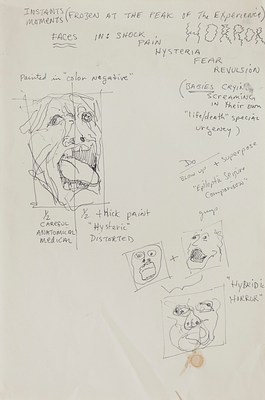 INSTANTS
MOMENTS (FROZEN AT THE PEAK OF THE EXPERIENCE)
HORROR
FACES IN: SHOCK
PAIN
HYSTERIA
FEAR
REVULSION
Painted in "color negative"
(BABIES CRYING
SCREAMING
IN THEIR OWN
"life/death" special
urgency)
DO
BLOW UP + Superpose
"Epileptic Seizure
Comparisons"
½
CAREFUL
ANATOMICAL
MEDICAL
½ thick paint
"Hysteric"
DISTORTED
+
"HYBRID
HORROR"